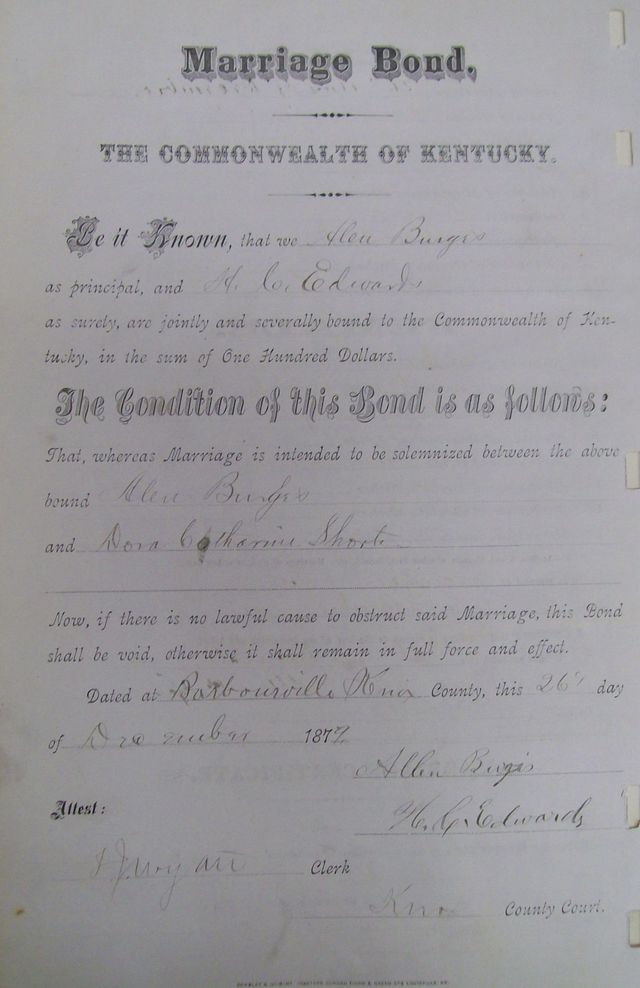 Marriage Bond.
THE COMMONWEALTH OF KENTUCKY.
Be it Known, that we Alen Burges
as principal, and H. C. Edwards
as surely, are jointly and severally bound to the Commonwealth of Ken-
tucky, in the sum of One Hundred Dollars.
The Condition of this Bond is as follows:
That, whereas Marriage is intended to be solemnized between the above
bound Alen Burges
and Dora Catharine Short
Now, if there is no lawful cause to obstruct said Marriage, this Bond
shall be void, otherwise it shall remain in full force and effect.
Dated at Barbourville Knox County, this 26 day
of December 1877
Allen Burgis
Attest:
H. C. Edwards
Wyatt Clerk
Knox County Court.